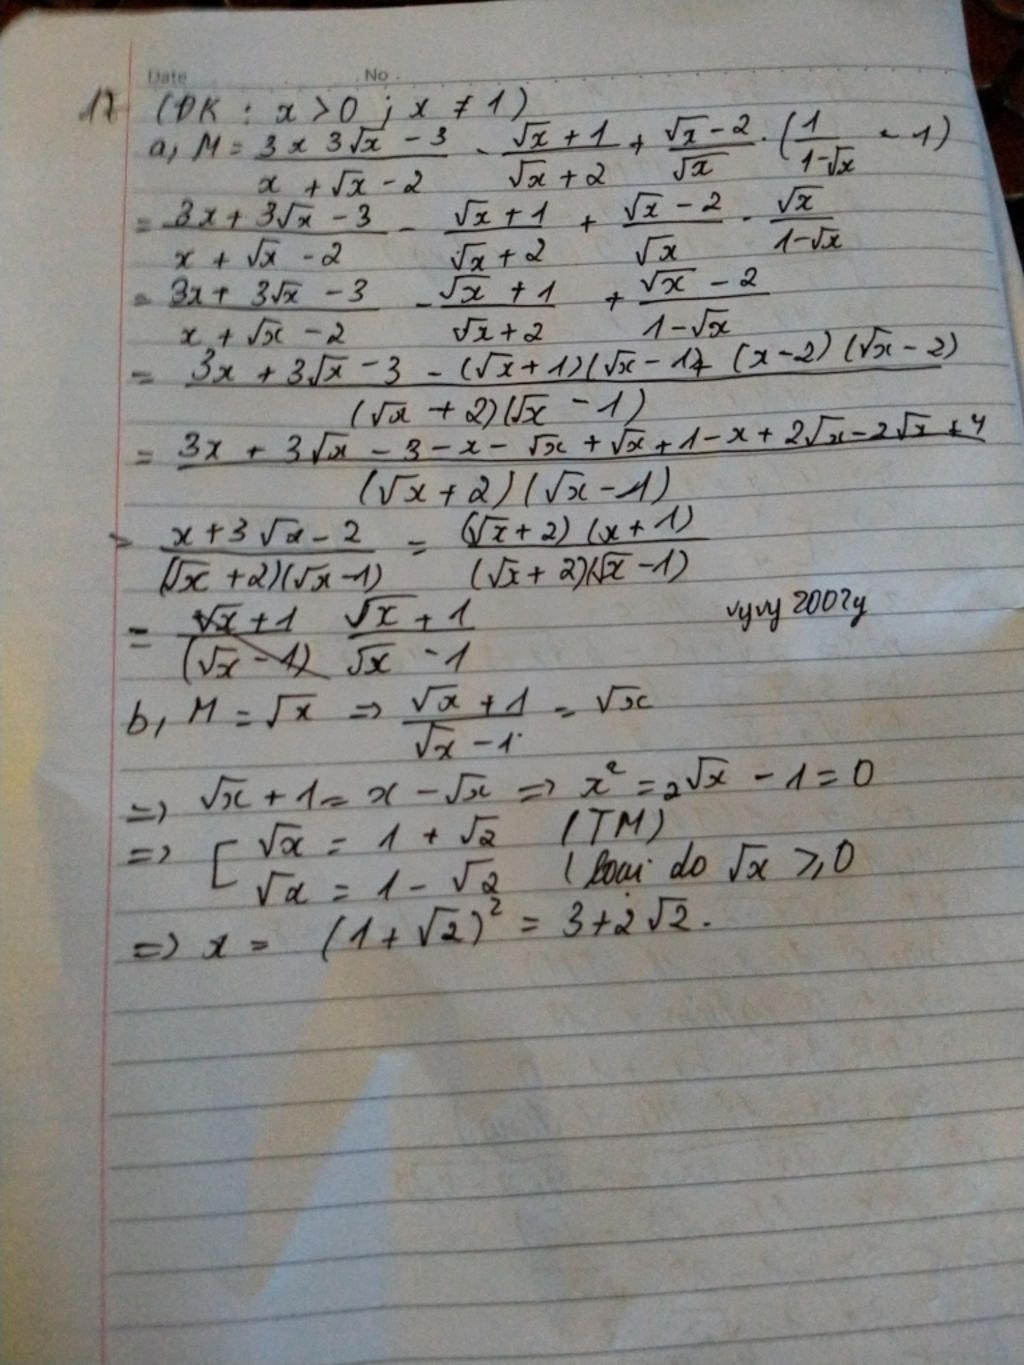 Date No.
17 (ĐK : x > 0 ; x ≠ 1)
a, M = (3x 3√x - 3)/(x + √x - 2) - (√x + 1)/(√x + 2) + (√x - 2)/√x . (1/(1-√x) - 1)
= (3x + 3√x - 3)/(x + √x - 2) - (√x + 1)/(√x + 2) + (√x - 2)/√x . √x/(1-√x)
= (3x + 3√x - 3)/(x + √x - 2) - (√x + 1)/(√x + 2) + (√x - 2)/(1-√x)
= (3x + 3√x - 3 - (√x + 1)(√x - 1) + (x - 2)(√x - 2))/((√x + 2)(√x - 1))
= (3x + 3√x - 3 - x - √x + √x + 1 - x + 2√x - 2√x + 4)/((√x + 2)(√x - 1))
= (x + 3√x - 2)/((√x + 2)(√x - 1)) = ((√x + 2)(x + 1))/((√x + 2)(√x - 1))
= (√x + 1)/(√x - 1) (√x + 1)/(√x - 1)
vyvy2002y
b, M = √x => (√x + 1)/(√x - 1) = √x
=> √x + 1 = x - √x => x² = 2√x - 1 = 0
=> [ √x = 1 + √2 (TM)
√x = 1 - √2 (loại do √x ≥ 0
=> x = (1 + √2)² = 3 + 2√2.